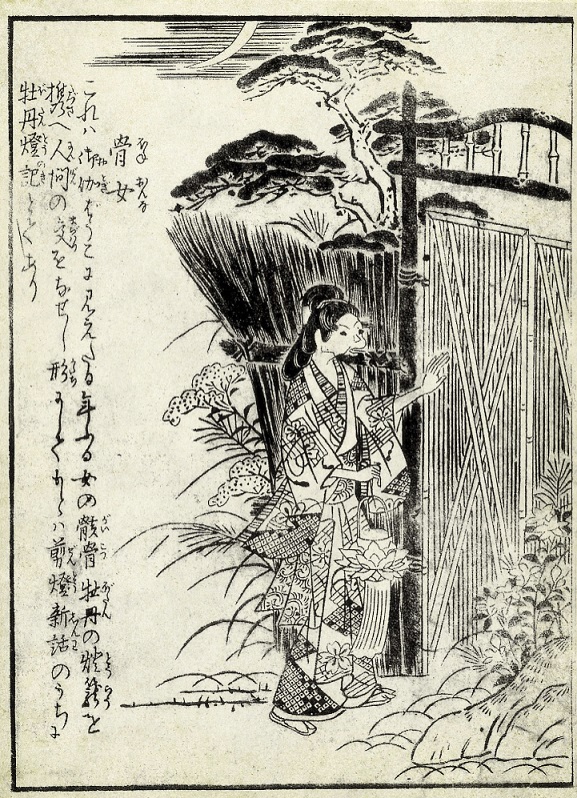 骨女
これハ御伽ばうこに見えたる年ふる女の骸骨牡丹の燈籠を
携へ人間の交をなせし形にしてもとハ剪燈新話のうちに
牡丹燈記とてあり